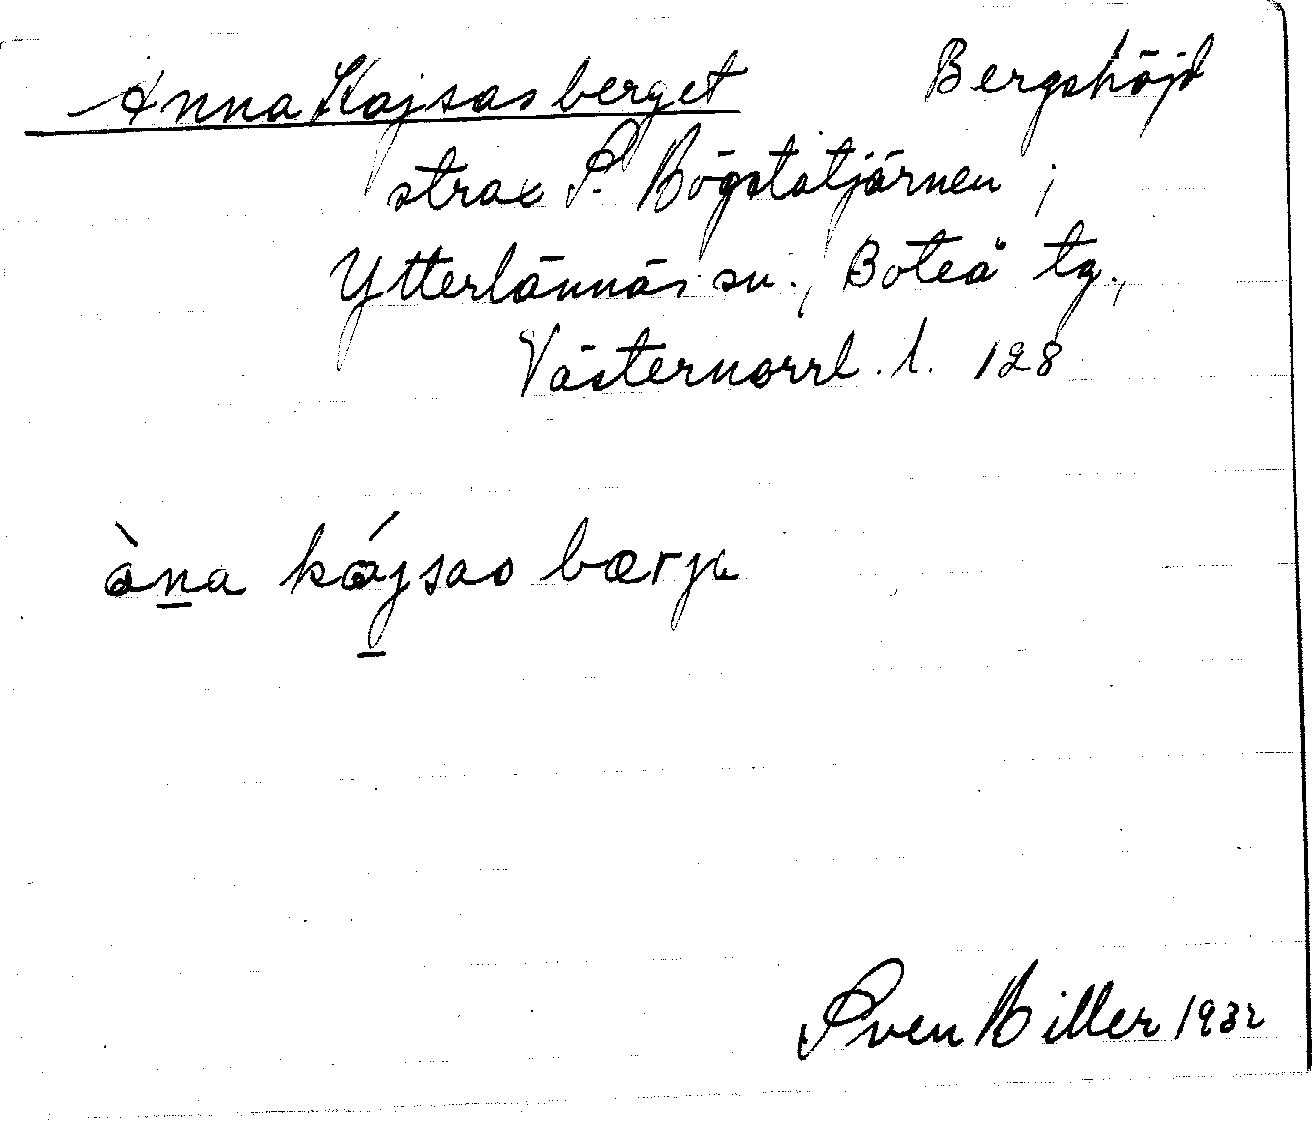 Anna Kajsasberget Bergshöjd
strax S. Bögstatjärnen ;
Ytterlännäs sn., Boteå tg.,
Västernorrl. l. 128
àn̲a kájsas bærjɩ
Sven Biller 1932